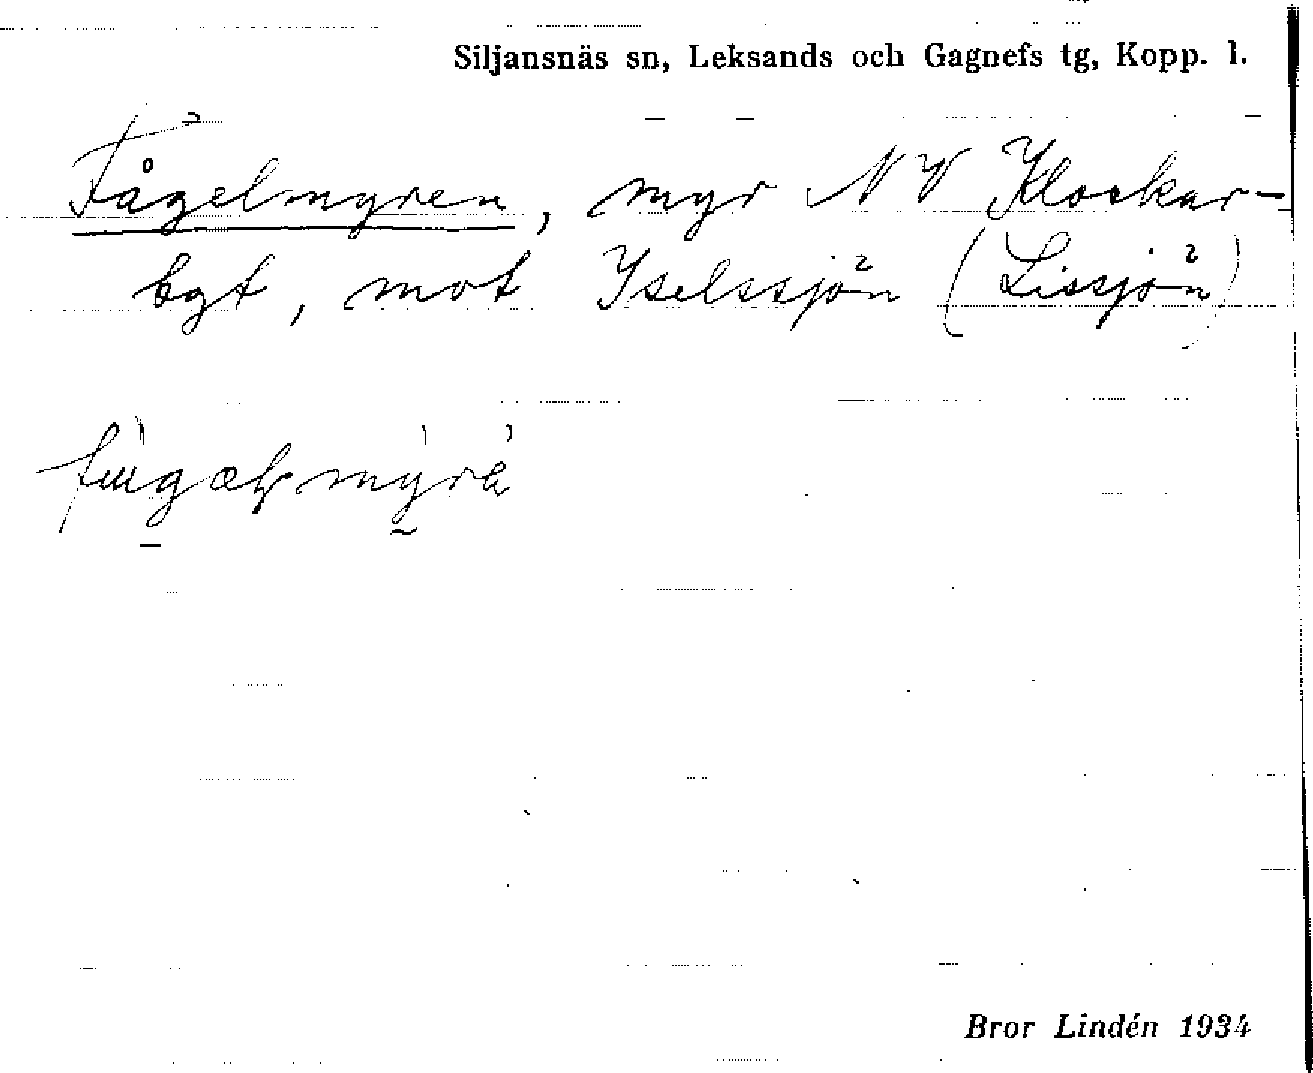 Siljansnäs sn, Leksands och Gagnefs tg, Kopp. l.
Fågelmyren, myr NV Klockar-
bgt, mot Yselssjön (Lissjön)
Bror Lindén 1934